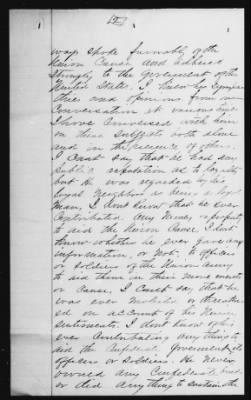 ways spoke favorably of the
Union Cause and adhered
strongly to the government of the
United States. I knew his sympa
thies and opinions from
Conversation at various times
I have conversed with him
on these subjects both alone
and in the presence of others.
I cant say that he had any
public reputation as to loyalty
but he was regarded by his
loyal neighbors as being a loyal
man, I dont know that he ever
contributed any money or property
to aid the Union Cause. I dont
know whether he ever gave any
information, or not, to officers
or soldiers of the Union Army
to aid them in their movements
or cause. I cant say that he
was ever molested or threaten
ed on account of his Union
sentiments. I dont know of his
ever contributing anything to
aid the Confederate Government, its
officers or soldiers. He never
owned any Confederate bonds
or did anything to sustain the